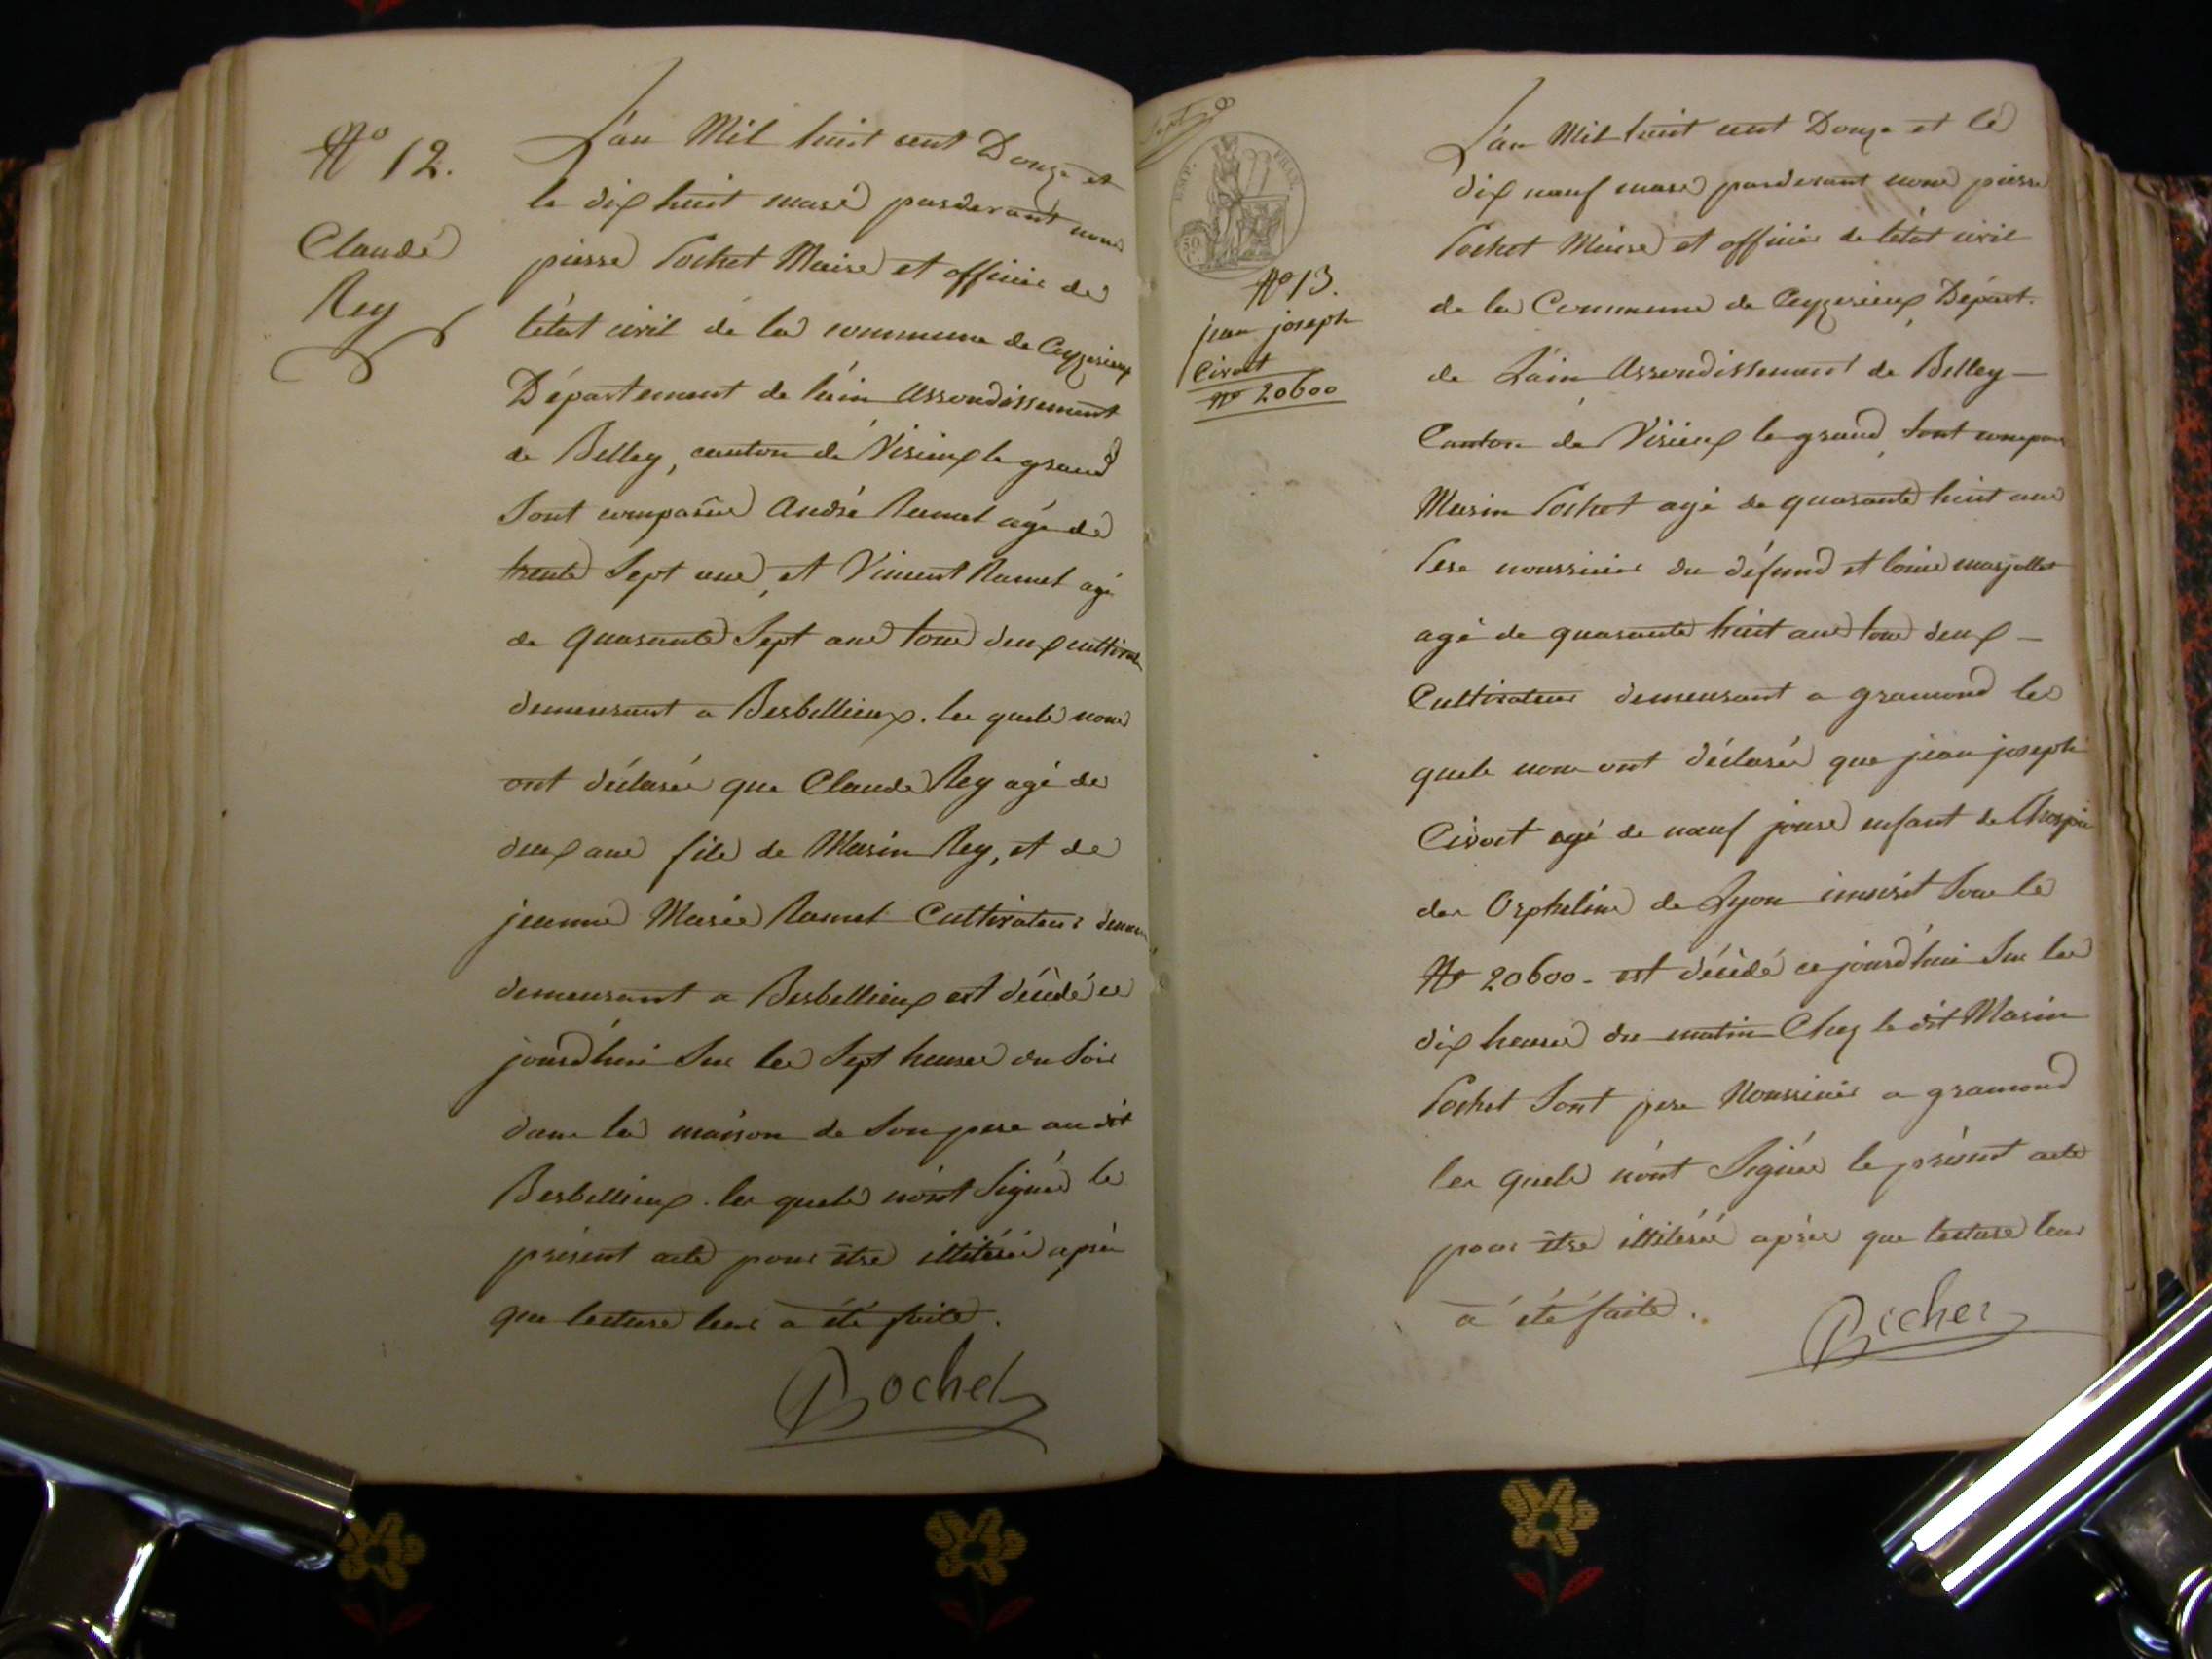 No 12.
Claude
Rey
L'an Mil huit cent Douze et
le dix huit mars pardevant nous
pierre Pochet Maire et officier de
l'état civil de la commune de Ceyzerieux
Département de l'ain arrondissement
de Belley, canton de Virieux le grand
Sont comparus André Ramel agé de
trente Sept ans, et Vincent Ramel agé
de quarante Sept ans tous deux cultivat
demeurant a Berbellieux. les quels nous
ont déclarés que Claude Rey agé de
deux ans fils de Marin Rey, et de
jeanne Marie Ramel Cultivateurs
demeurant a Berbellieux est décédé ce
jourd'hui Sur les Sept heures du Soir
dans la maison de Son pere au dit
Berbellieux. les quels n'ont Signés le
présent acte pour être illitérés après
que lecture leur a été faite.
Pochet
Sept
EMP. FRAN.
50
No 13.
jean joseph
Civoct
No 20600
L'an Mil huit cent Douze et le
dix neuf mars pardevant nous pierre
Pochet Maire et officier de l'état civil
de la Commune de Ceyzerieux, Départ.
de L'ain Arrondissement de Belley
Canton de Virieux le grand, Sont compars
Marin Pochet agé de quarante huit ans
Pere nourricier du défund et louis marjollet
agé de quarante huit ans tous deux
Cultivateurs demeurant a gramond les
quels nous ont déclarés que jean joseph
Civoct agé de neuf jours enfant de l'hospice
des Orphelins de Lyon inscrit Sous le
No 20600 - est décédé ce jourd'hui Sur les
dix heures du matin Chez le dit Marin
Pochet Sont pere Nourricier a gramond
les quels n'ont Signés le présent acte
pour être illitérés après que lecture leur
a été faite.
Pochet